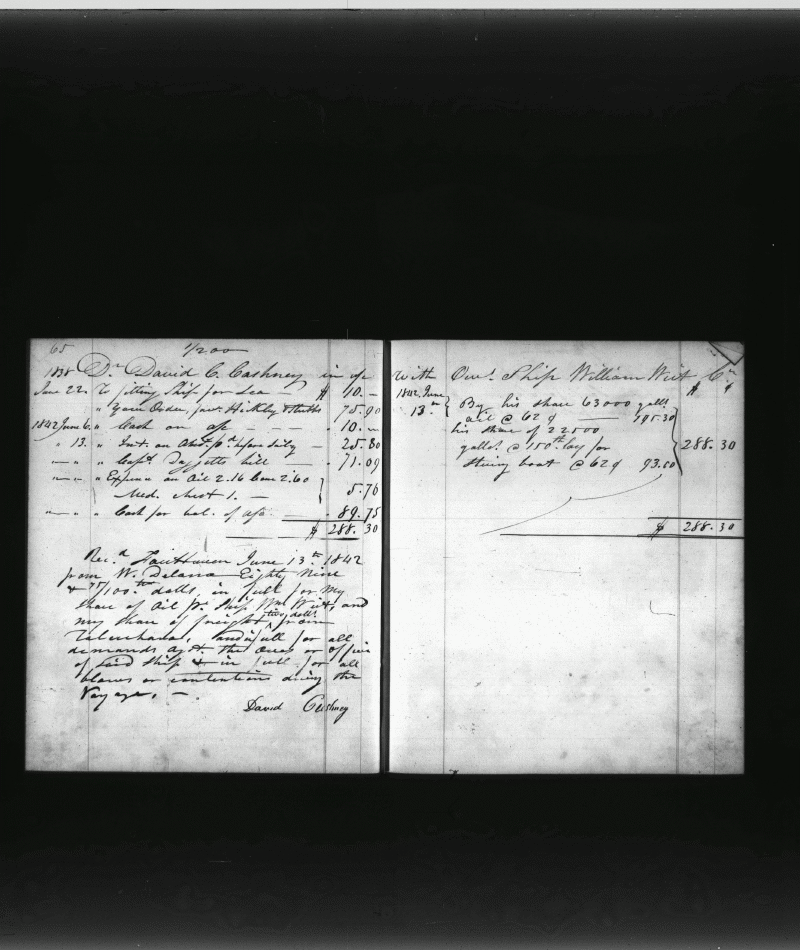 65 1/200
1838 Dr. David C. Cashney in a/c
June 22. To fitting Ship for sea — $ 10. –
" Your Order, favr. Hickby & Tubbs 75.90
1842 June 6. " Cash on a/c — — — 10. –
" 13. " Int. on Abt. pd. before July — 25.80
— " — " Capt. Daggetts bill — . 71.09
— " — " Expense on Oil 2.16 2.60
Med. Chest 1. — } 5.76
— " — " Cash for bal. of a/c . 89.75
$ 288.30
Rec.d Fairhaven June 13th 1842
from W. Delano Eighty Nine
& 75/100ths dolls, in full for my
share of Oil pr. Ship Wm Wirt, and
my share of freight two dolls from
Talcahuana, and in full for all
demands agst. the Ownrs or Officers
of said Ship & in full for all
blows or contentions during the
Voyage. —
David Cushney
With Own.s Ship William Wirt Cr.
1842 June $ ¢
" 13. { By his share 63000 galls
oil @ 62 ¢ — 195.30
his share of 22500
galls. @ 150th lay for
steering boat @ 62 ¢ 93.00 } 288.30
$ 288.30